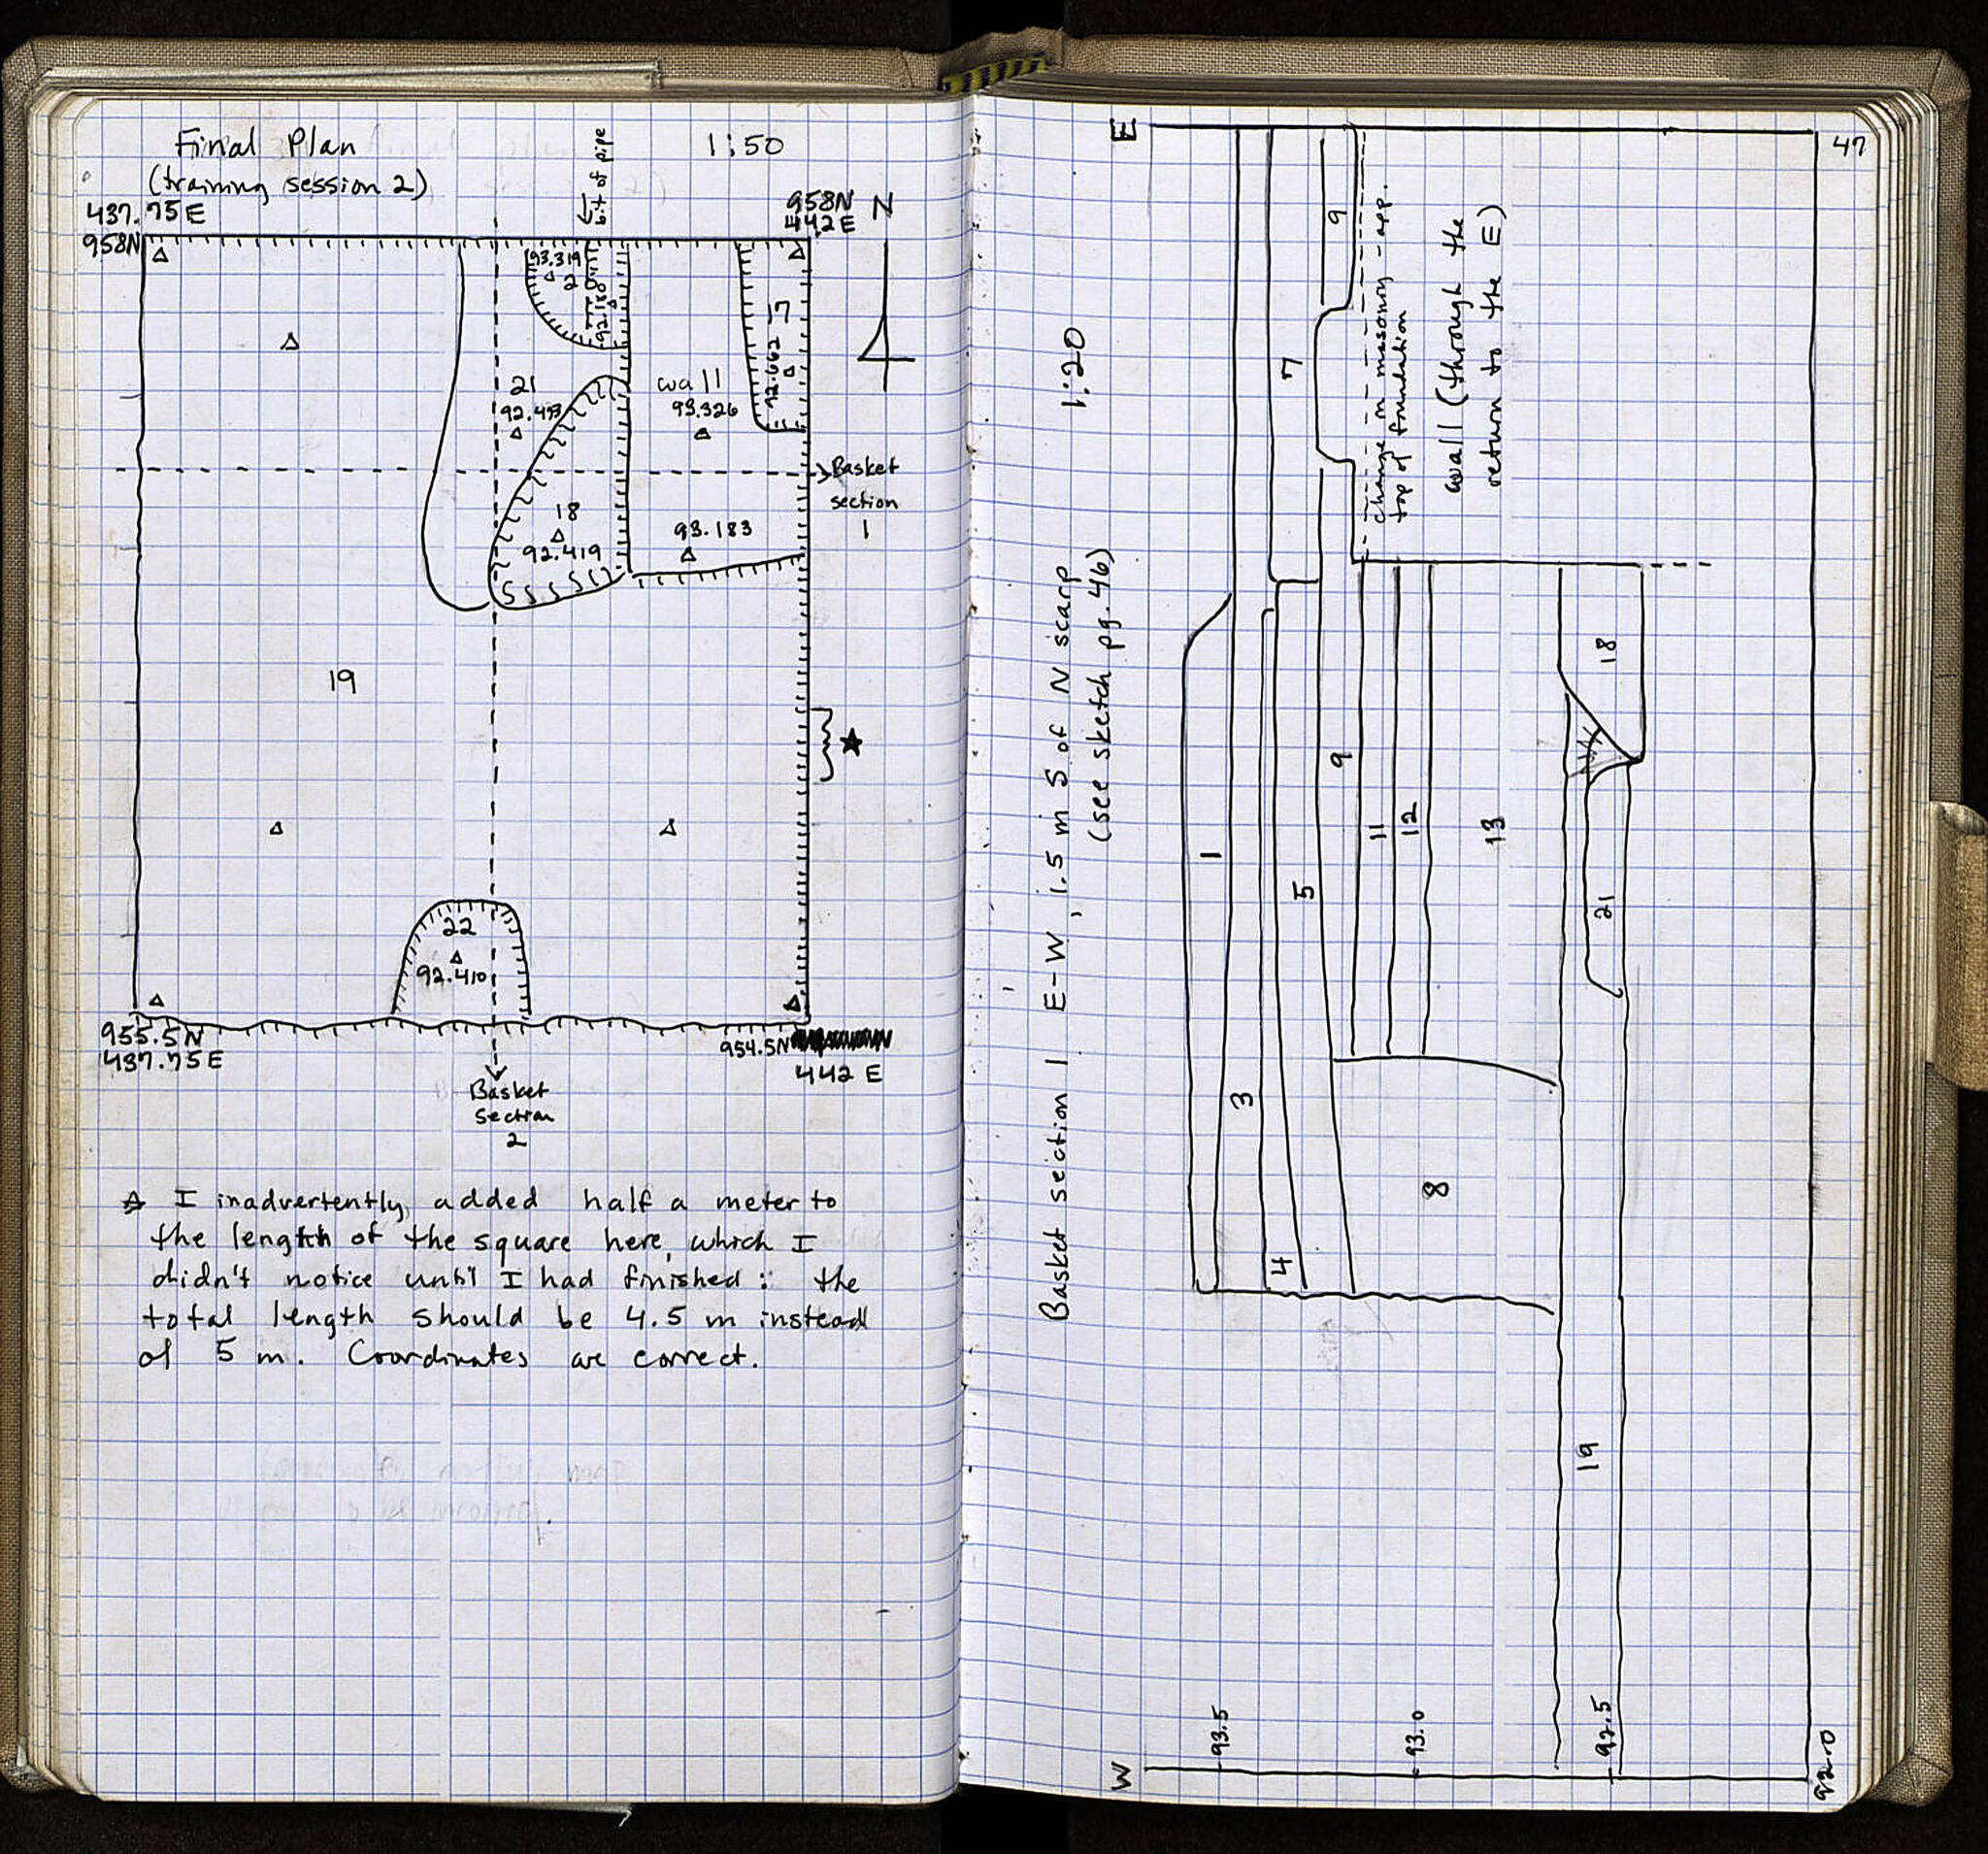 Final Plan
(training session 2)
1:50
bit of pipe
437.75E
958N
958N
442E
N
93.319
2
92.180
21
92.493
wall
93.326
92.662
Basket
section
1
18
92.419
93.183
19
★
22
92.410
955.5N
437.75E
954.5N
442 E
Basket
Section
2
☆ I inadvertently added half a meter to
the length of the square here, which I
didn't notice until I had finished: the
total length should be 4.5 m instead
of 5 m. Coordinates are correct.
47
Basket section 1 E-W, 1.5 m S of N scarp
(see sketch pg. 46)
1:20
E
W
1
3
4
5
7
9
9
11
12
13
8
18
21
19
change in masonry - app.
top of foundation
wall (through the
return to the E)
93.5
93.0
92.5
92.0